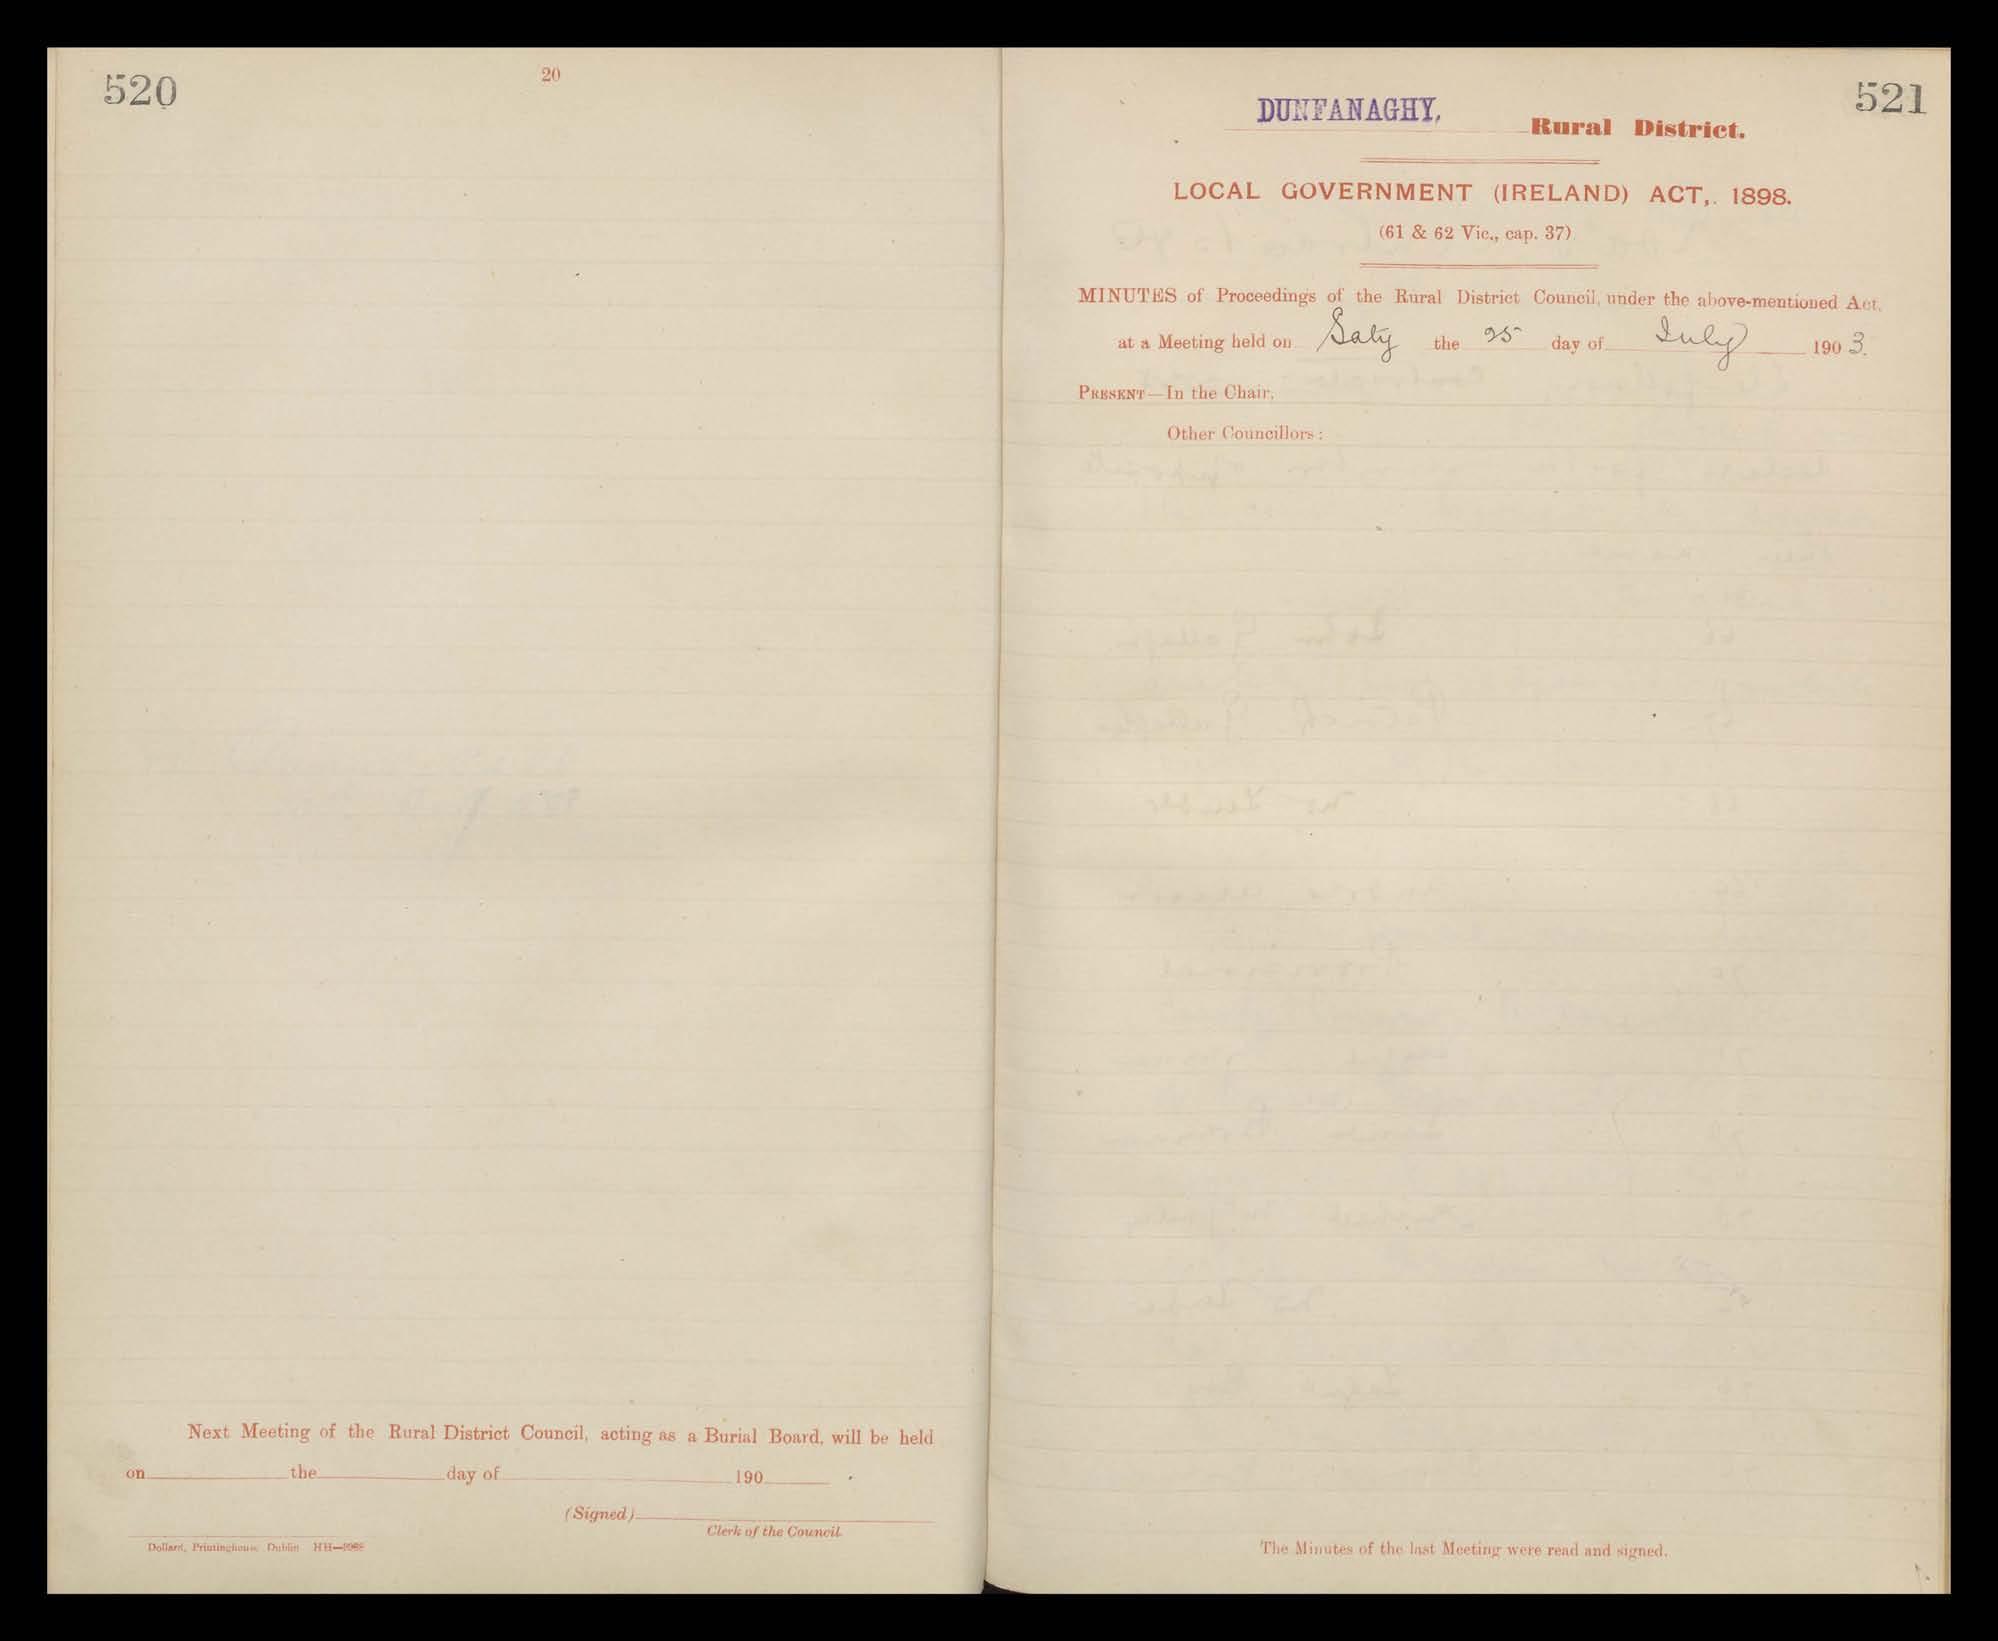 520
20
Next Meeting of the Rural District Council, acting as a Burial Board, will be held
on the day of 190 .
(Signed)
Clerk of the Council.
Dollard, Printinghouse Dublin HH—
521
DUNFANAGHY, Rural District.
LOCAL GOVERNMENT (IRELAND) ACT,. 1898.
(61 & 62 Vic., cap. 37)
MINUTES of Proceedings of the Rural District Council, under the above-mentioned Act,
at a Meeting held on Saty the 25 day of July 1903.
PRESENT—In the Chair,
Other Councillors:
The Minutes of the last Meeting were read and signed.